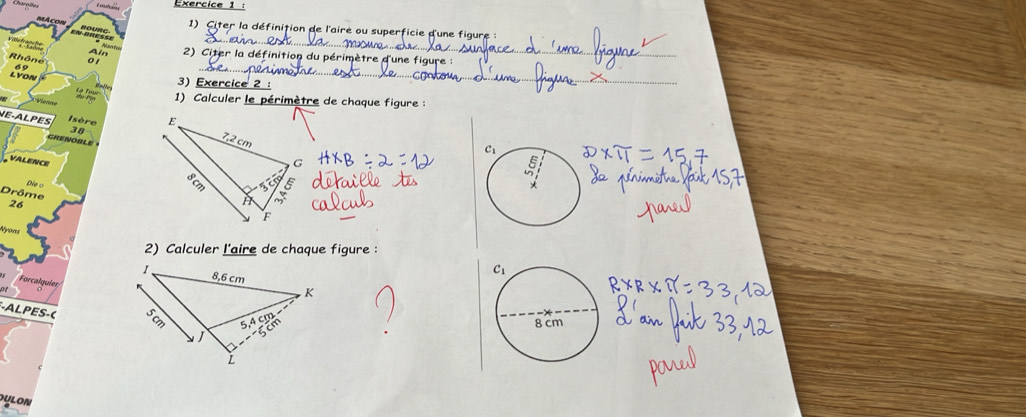 Exercice 1 :
1) Citer la définition de l'aire ou superficie d'une figure :
L'air est la mesure de la surface d'une figure ✓
2) Citer la définition du périmètre d'une figure :
Le périmètre est le contour d'une figure ×
3) Exercice 2 :
1) Calculer le périmètre de chaque figure :
E
7,2 cm
G
8 cm
3 cm
3,4 cm
H
F
H×B÷2=12
détaille tes
calculs
C₁
5 cm
D×π=15,7
Le périmètre fait 15,7
pareil
2) Calculer l'aire de chaque figure :
I
8,6 cm
K
5 cm
5,4 cm
5 cm
J
L
?
C₁
8 cm
R×R×π=33,12
L'air fait 33,12
pareil
Charolles
Louhans
MÂCON
BOURG-
EN-BRESSE
Nantua
Villefranche-
s.-Saône
Ain
01
Rhône
69
LYON
Belley
La Tour-
du-Pin
Vienne
NE-ALPES
Isère
38
GRENOBLE
VALENCE
Die
Drôme
26
Nyons
Forcalquier
-ALPES-
OULON